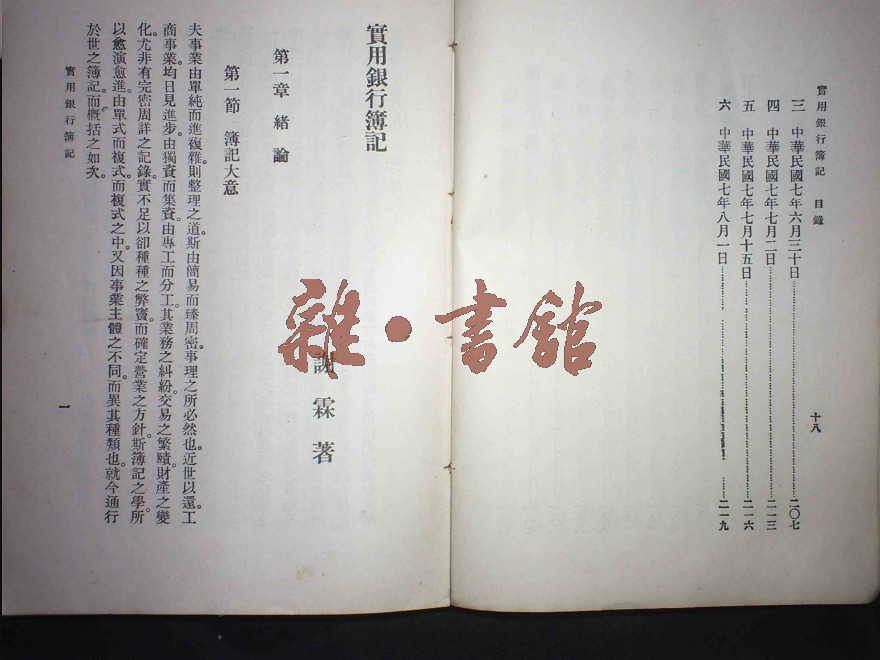 實用銀行簿記 目錄
三 中華民國七年六月三十日……二〇七
四 中華民國七年七月二日……二一三
五 中華民國七年七月十五日……二一六
六 中華民國七年八月一日……二一九
十八
實用銀行簿記
第一章 緒論
謝霖著
第一節 簿記大意
夫事業由單純而進複雜。則整理之道。斯由簡易而臻周密。事理之所必然也。近世以還。工
商事業。均日見進步。由獨資而集資。由專工而分工。其業務之糾紛。交易之繁賾。財產之變
化。尤非有完密周詳之記錄。實不足以卻種種之弊竇。而確定營業之方針。斯簿記之學。所
以愈演愈進。由單式而複式。而複式之中。又因事業主體之不同。而異其種類也。就今通行
於世之簿記。而概括之如次。
實用銀行簿記
一
雜·書館